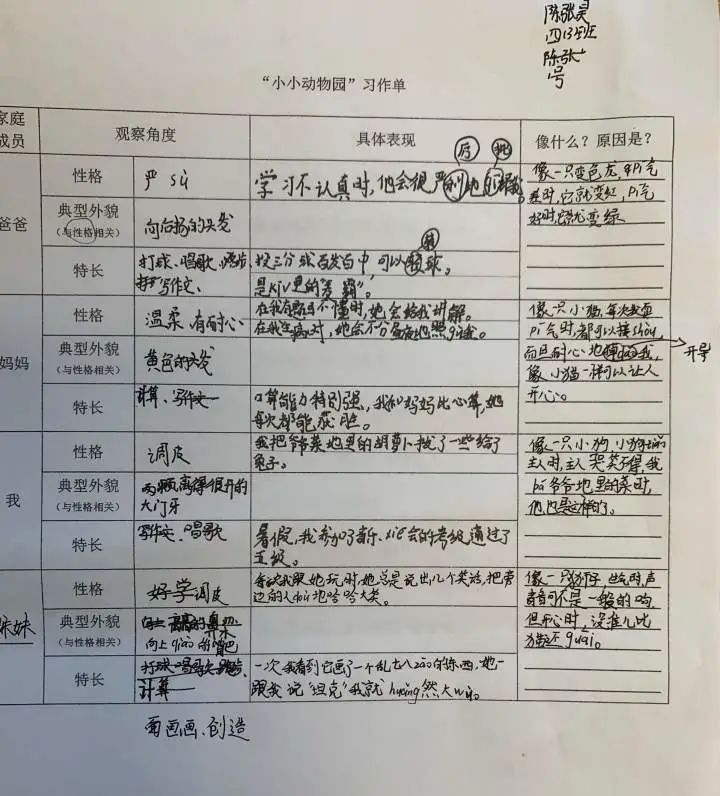 陈张昊
四(3)班
陈张
号
“小小动物园”习作单
家庭成员 观察角度 具体表现 像什么？原因是？
爸爸
性格 严sù 学习不认真时，他会很严厉地批评我。
典型外貌（与性格相关） 向后扬的头发
特长 打球、唱歌、跑步、写作文 投三分球百发百中，可以转球。
是KTV里的麦霸”。
像一只变色龙，
时，它就变红，pí气
好时，变绿
妈妈
性格 温柔、有耐心 在我有题目不懂时，她会给我讲解。
在我生病时，她会不分昼夜地照gù我。
典型外貌（与性格相关） 黄色的头发
特长 计算、写作文 口算能力特别强，我和妈妈比心算，她
每次都能获胜。
像一只小猫，每次我
pí气时都可以
而且耐心地开导我，
像小猫一样可以让人
开心。
我
性格 调皮 我把爷爷菜地里的胡萝卜拔了一些给了
兔子。
典型外貌（与性格相关） 两颗离得很开的
大门牙
特长 写作文、唱歌 暑假，我参加了音乐xié会的考级通过了
五级。
像一只小狗，小狗
主人时，主人哭笑不得，我
爷爷地里的菜时，
他也是这样的。
妹妹
性格 好学调皮 每次我跟她玩时，她总是说出几个笑话，把旁
边的人dòu地哈哈大笑。
典型外貌（与性格相关） 向上qiào的嘴巴
特长 打球、唱歌、跑步、
计算
一次我看到它画了一个乱七八zāo的东西，她一
跟我说“坦克”我就huǎng然大wù。
像一只狮子，生气时，声
音可不是一般的响，
但开心时，没准儿比
猫还guāi。
画画、创造